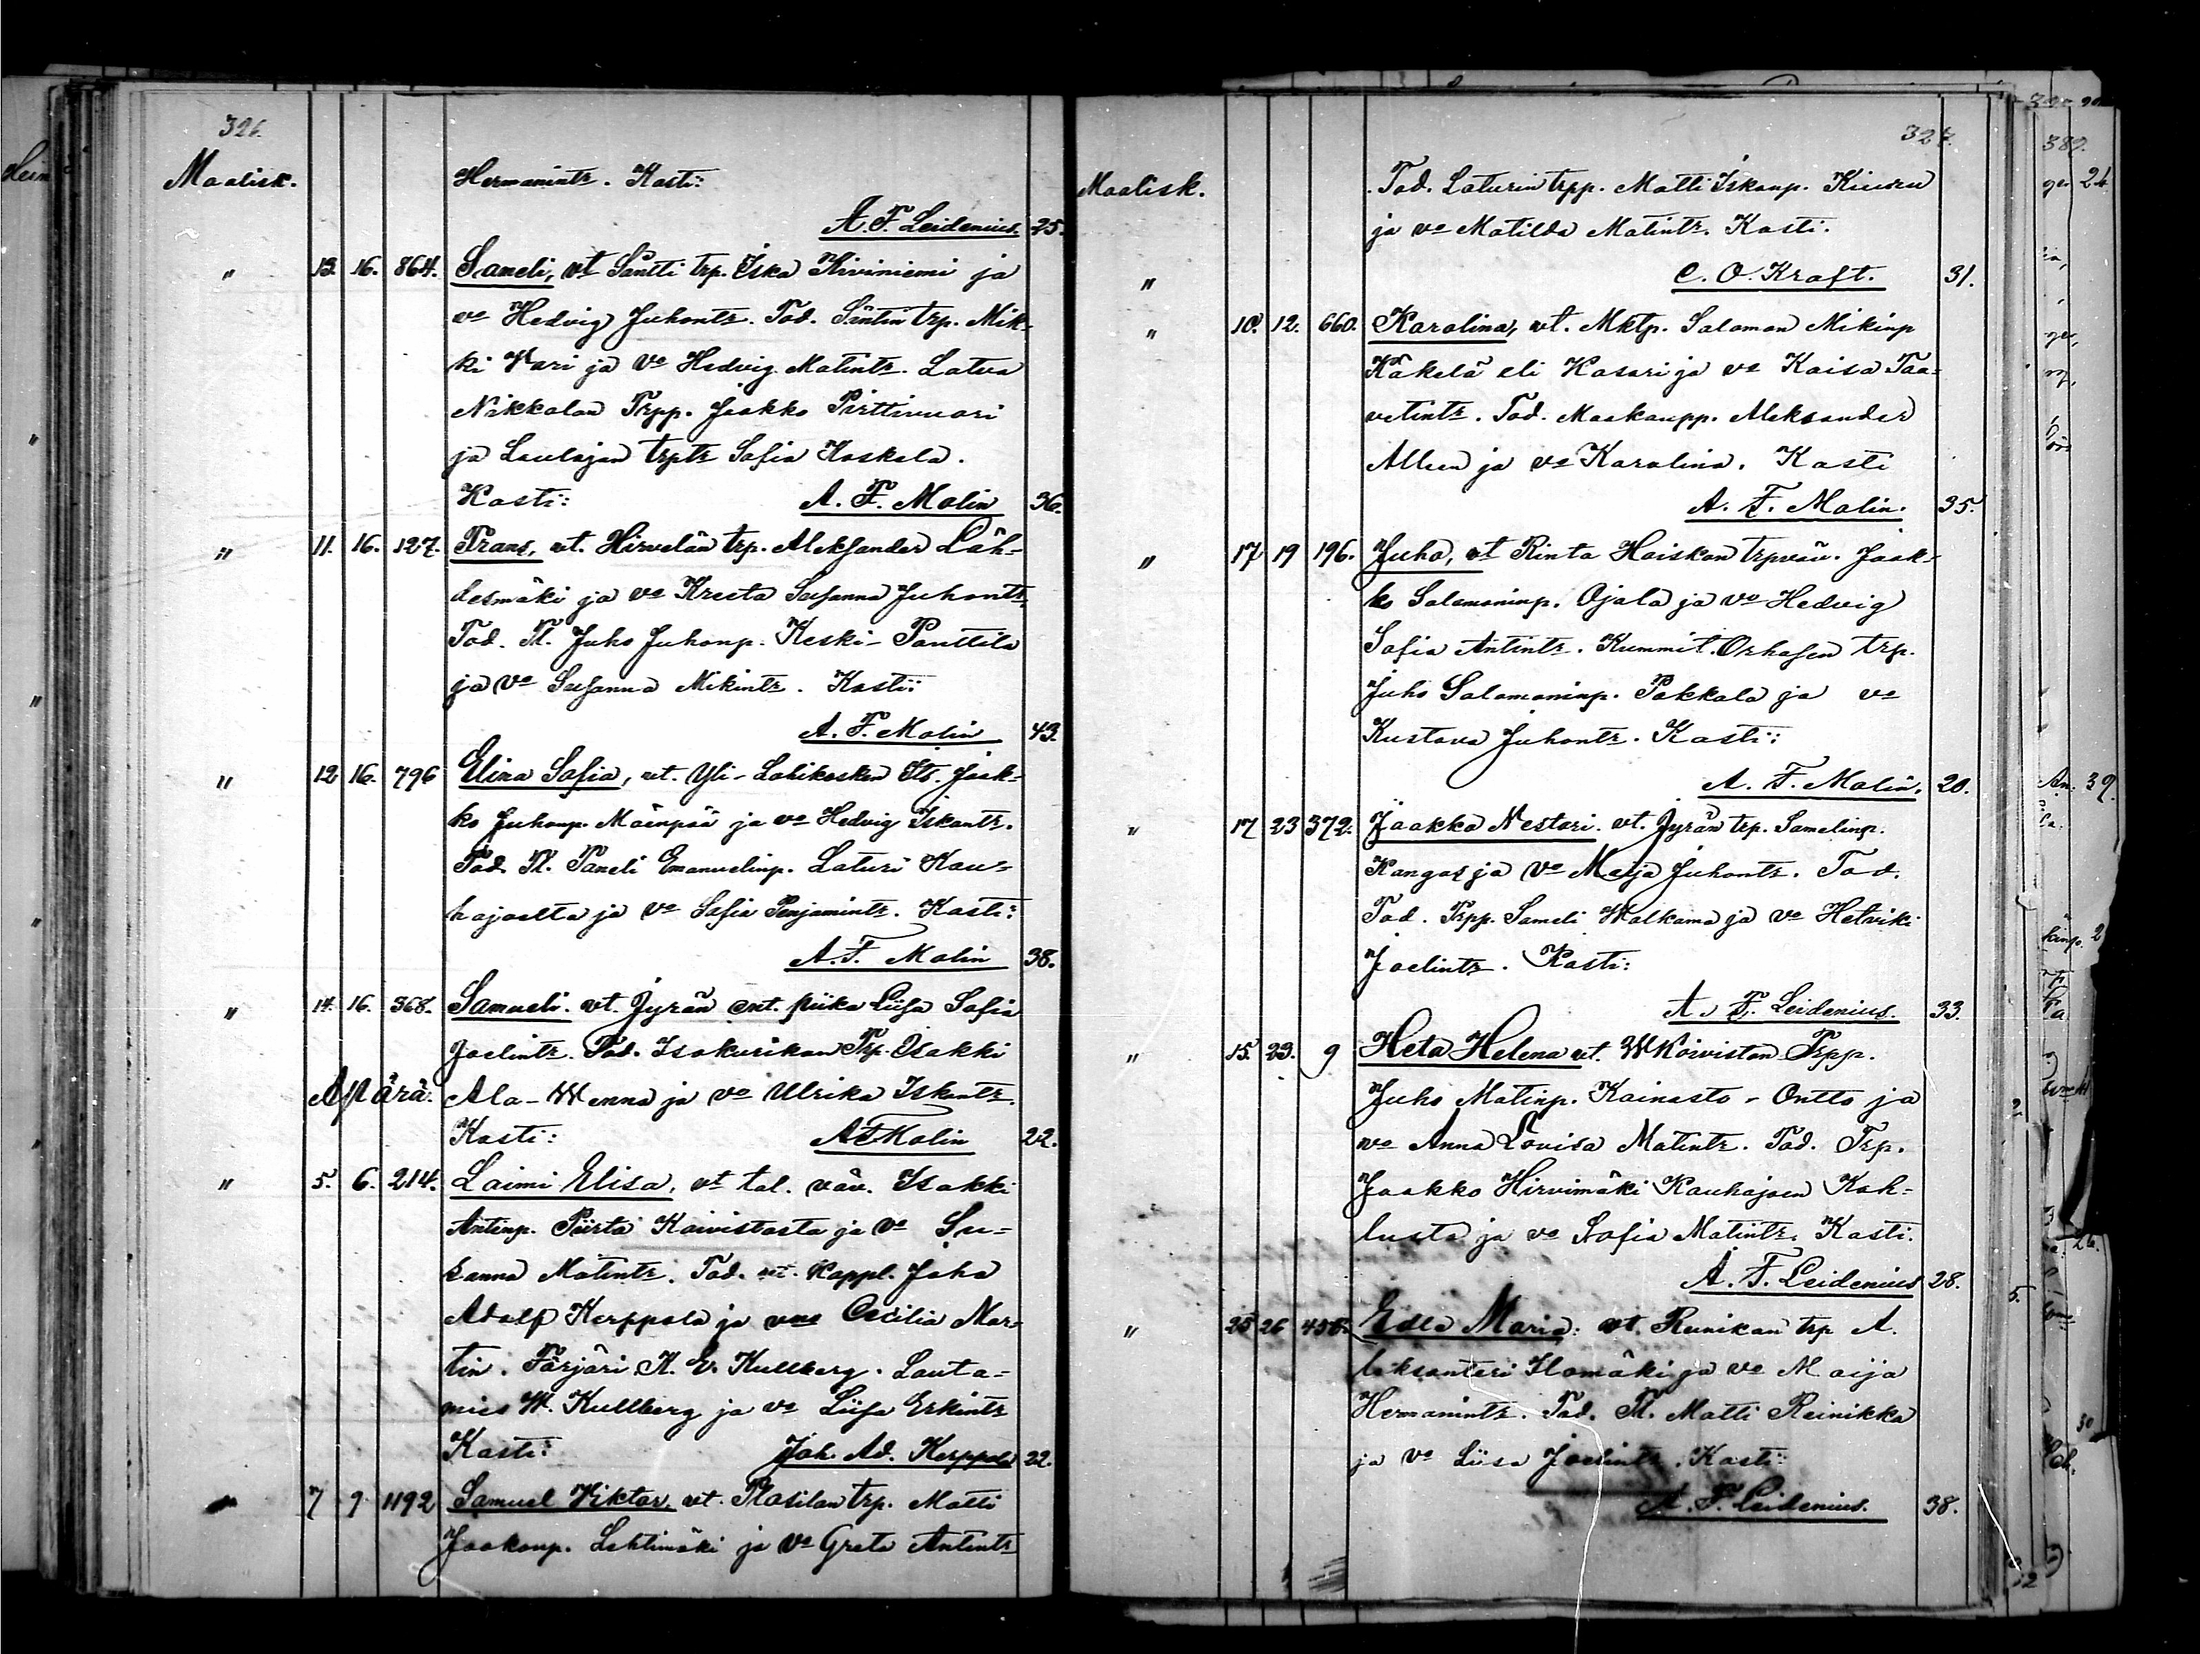 326.
Maalisk. Hermanintr. Kasti:
A. F. Leidenius. 25.
" 13. 16. 864. Sameli, vt Säntti trp. Iska Kiviniemi ja
vo Hedvig Juhontr. Tod. Säntin trp. Mik-
ki Wari ja vo Hedvig Matintr. Latva
Nikkolan Trpp. Jaakko Pirttivuori
ja Laulajan trptr Sofia Koskela.
Kasti: A. F. Malin 36.
" 11. 16. 127. Frans, vt. Hirvelän trp. Aleksander Läh-
desmäki ja vo Kreeta Susanna Juhontr,
Tod. Tl. Juho Juhonp. Keski-Panttila
ja vo Susanna Mikintr. Kasti:
A. F. Malin 43.
" 12 16. 796 Elina Sofia, vt. Yli-Lohikosken Itb. Jaak-
ko Juhonp. Mäenpää ja vo Hedvig Iskantr.
Tod. Tl. Taneli Emanuelinp. Laturi Kau-
hajoelta ja vo Sofia Penjamintr. Kasti:
A. F. Malin 38.
" 14. 16. 368. Samueli. vt. Jyrän ent. piika Liisa Sofia
Joelintr. Tod. Isokurikan Trp. Isakki
Äpärä. Ala-Wenna ja vo Ulrika Iskantr.
Kasti: A F Malin 22.
" 5. 6. 214. Laimi Elisa, vt tal. väv. Isakki
Antinp. Piirta Koivistosta ja vo Su-
sanna Matintr. Tod. vt. Kappl. Joha
Adolf Kerppola ja vns Cecilia Mar-
tin. Färjäri K. Er. Kullberg. Lauta-
mies W. Kullberg ja vo Liisa Erkintr
Kasti: Joh. Ad. Kerppola 22.
7 9 1192 Samuel Viktor, vt. Plosilan trp. Matti
Jaakonp. Lehtimäki ja vo Greta Antintr
327.
Maalisk. Tod. Laturin trpp. Matti Iskanp. Kiuru
ja vo Matilda Matintr. Kasti.
" C. O. Kraft. 31.
" 10. 12. 660. Karolina, vt. Mktp. Salomon Mikinp
Käkelä eli Kasari ja vo Kaisa Taa-
vetintr. Tod. Maakaupp. Aleksander
Allien ja vo Karolina. Kasti
A. F. Malin. 35.
" 17 19 196. Juho, vt Rinta Haiskon trpväv. Jaak-
ko Salomoninp. Ojala ja vo Hedvig
Sofia Antintr. Kummit. Orhasen trp.
Juho Salomoninp. Pakkala ja vo
Kustava Juhontr. Kasti:
A. F. Malin. 20.
" 17 23 372. Jaakko Nestori. vt. Jyrän trp. Samelinp.
Kangas ja vo Maija Juhontr. Tod.
Tod. Trpp. Sameli Walkama ja vo Hetviki
Joelintr. Kasti:
A. F. Leidenius. 33.
" 15. 23. 9 Heta Helena vt. W Koiviston Trpp.
Juho Matinp. Kainasto-Ontto ja
vo Anna Lovisa Matintr. Tod. Trp.
Jaakko Hirvimäki Kauhajoen Koh-
lusta ja vo Sofia Matintr. Kasti.
A. F. Leidenius 28.
" 25 26 Edla Maria: vt. Reinikan trp A.
leksanteri Ilomäki ja vo Maija
Hermanintr. Tod. Tl. Matti Reinikka
ja vo Liisa Joelintr. Kasti:
A. F. Leidenius. 38.